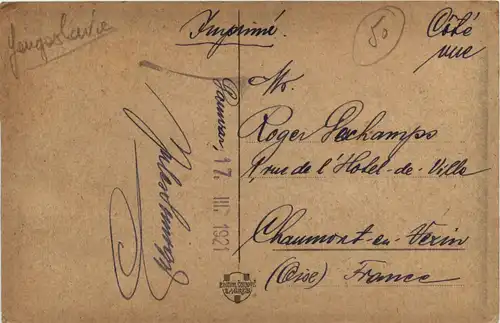 Imprimé.
Côté
vue
50
Mr.
Roger Dechamps
1, rue de l'Hotel-de-Ville
Chaumont-en-Vexin
(Oise) France
17. III. 1921